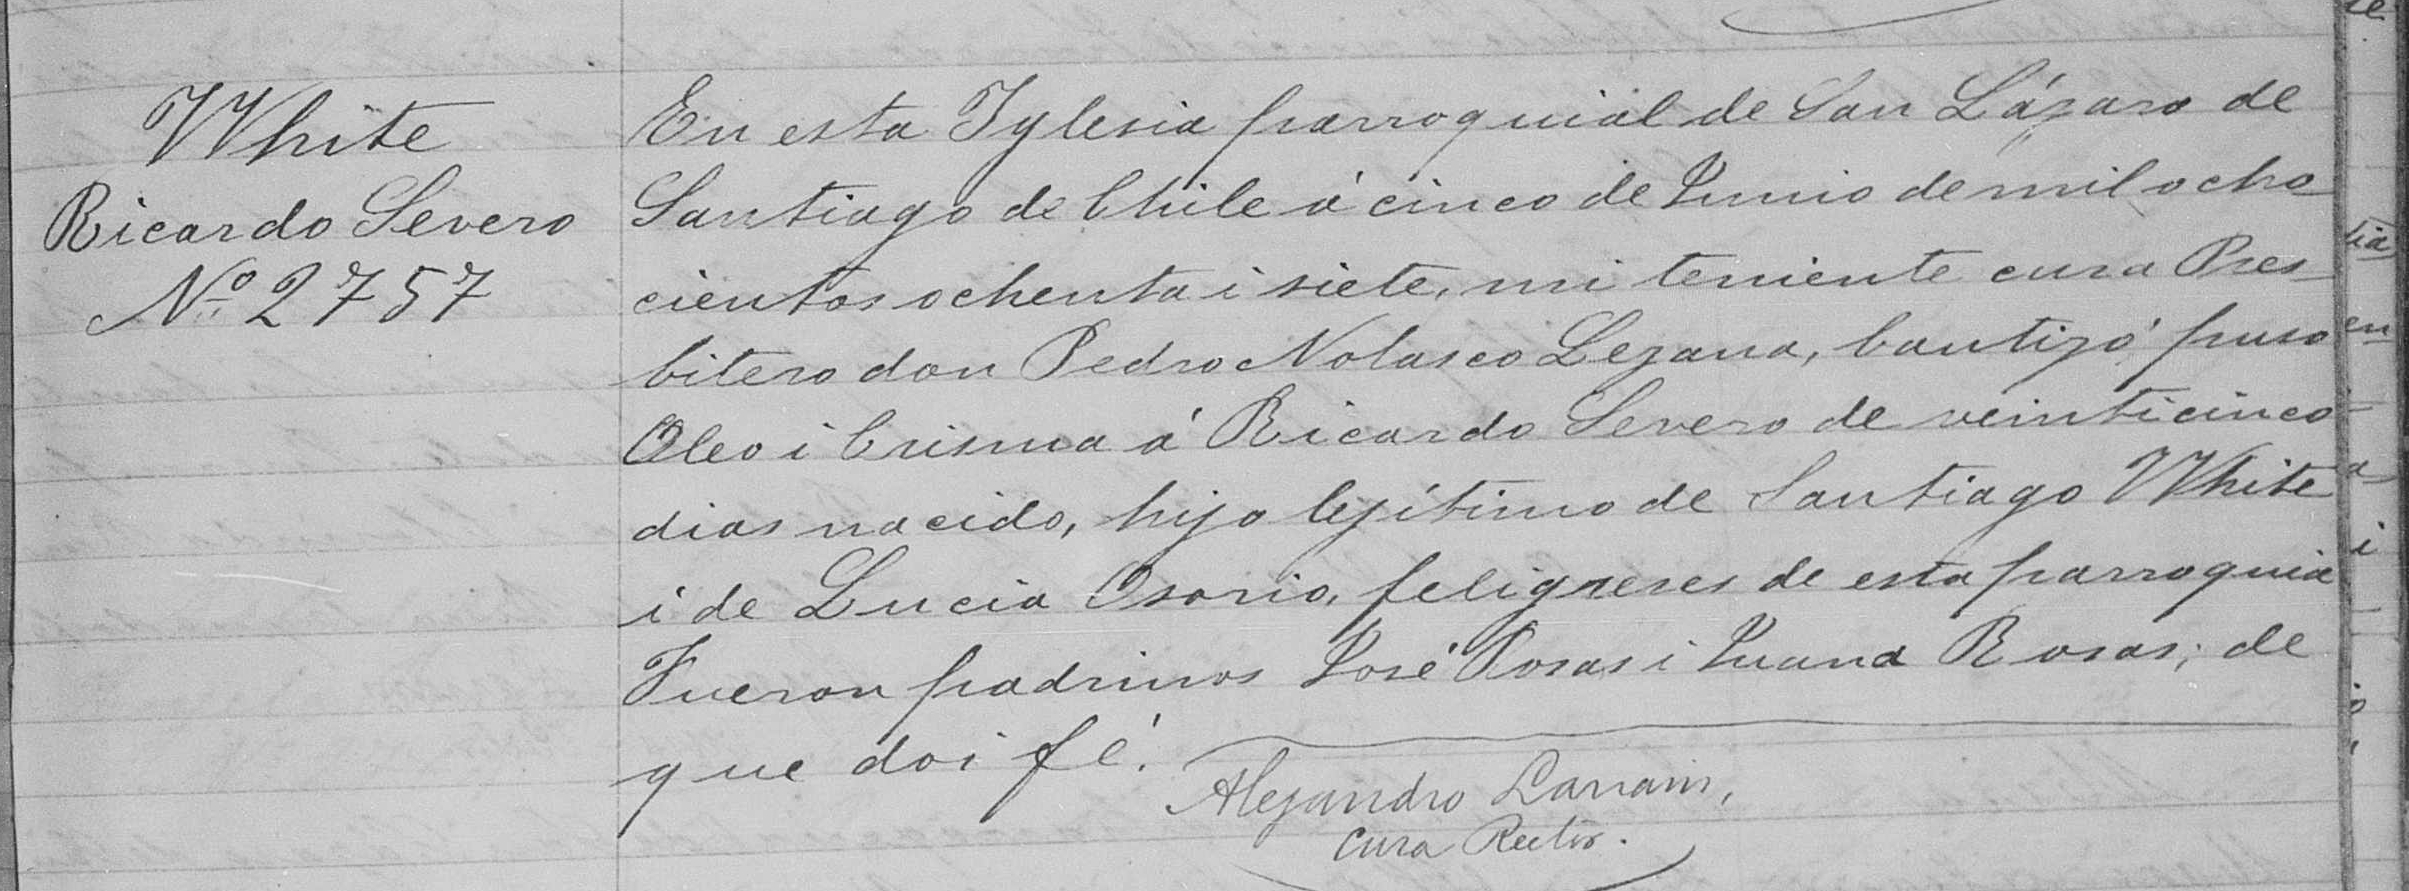 White
Ricardo Severo
Nº 2757
En esta Iglesia parroquial de San Lázaro de
Santiago de Chile á cinco de Junio de mil ocho
cientos ochenta i siete, mi teniente cura Pres
bitero don Pedro Nolasco Lezana, bautizó puso
Oleo i Crisma á Ricardo Severo de veinticinco
dias nacido, hijo lejítimo de Santiago White
i de Lucia Osorio, feligreses de esta parroquia
Fueron padrinos José Rosas i Juana Rosas; de
que doi fé.
Alejandro Larrain,
Cura Rector.